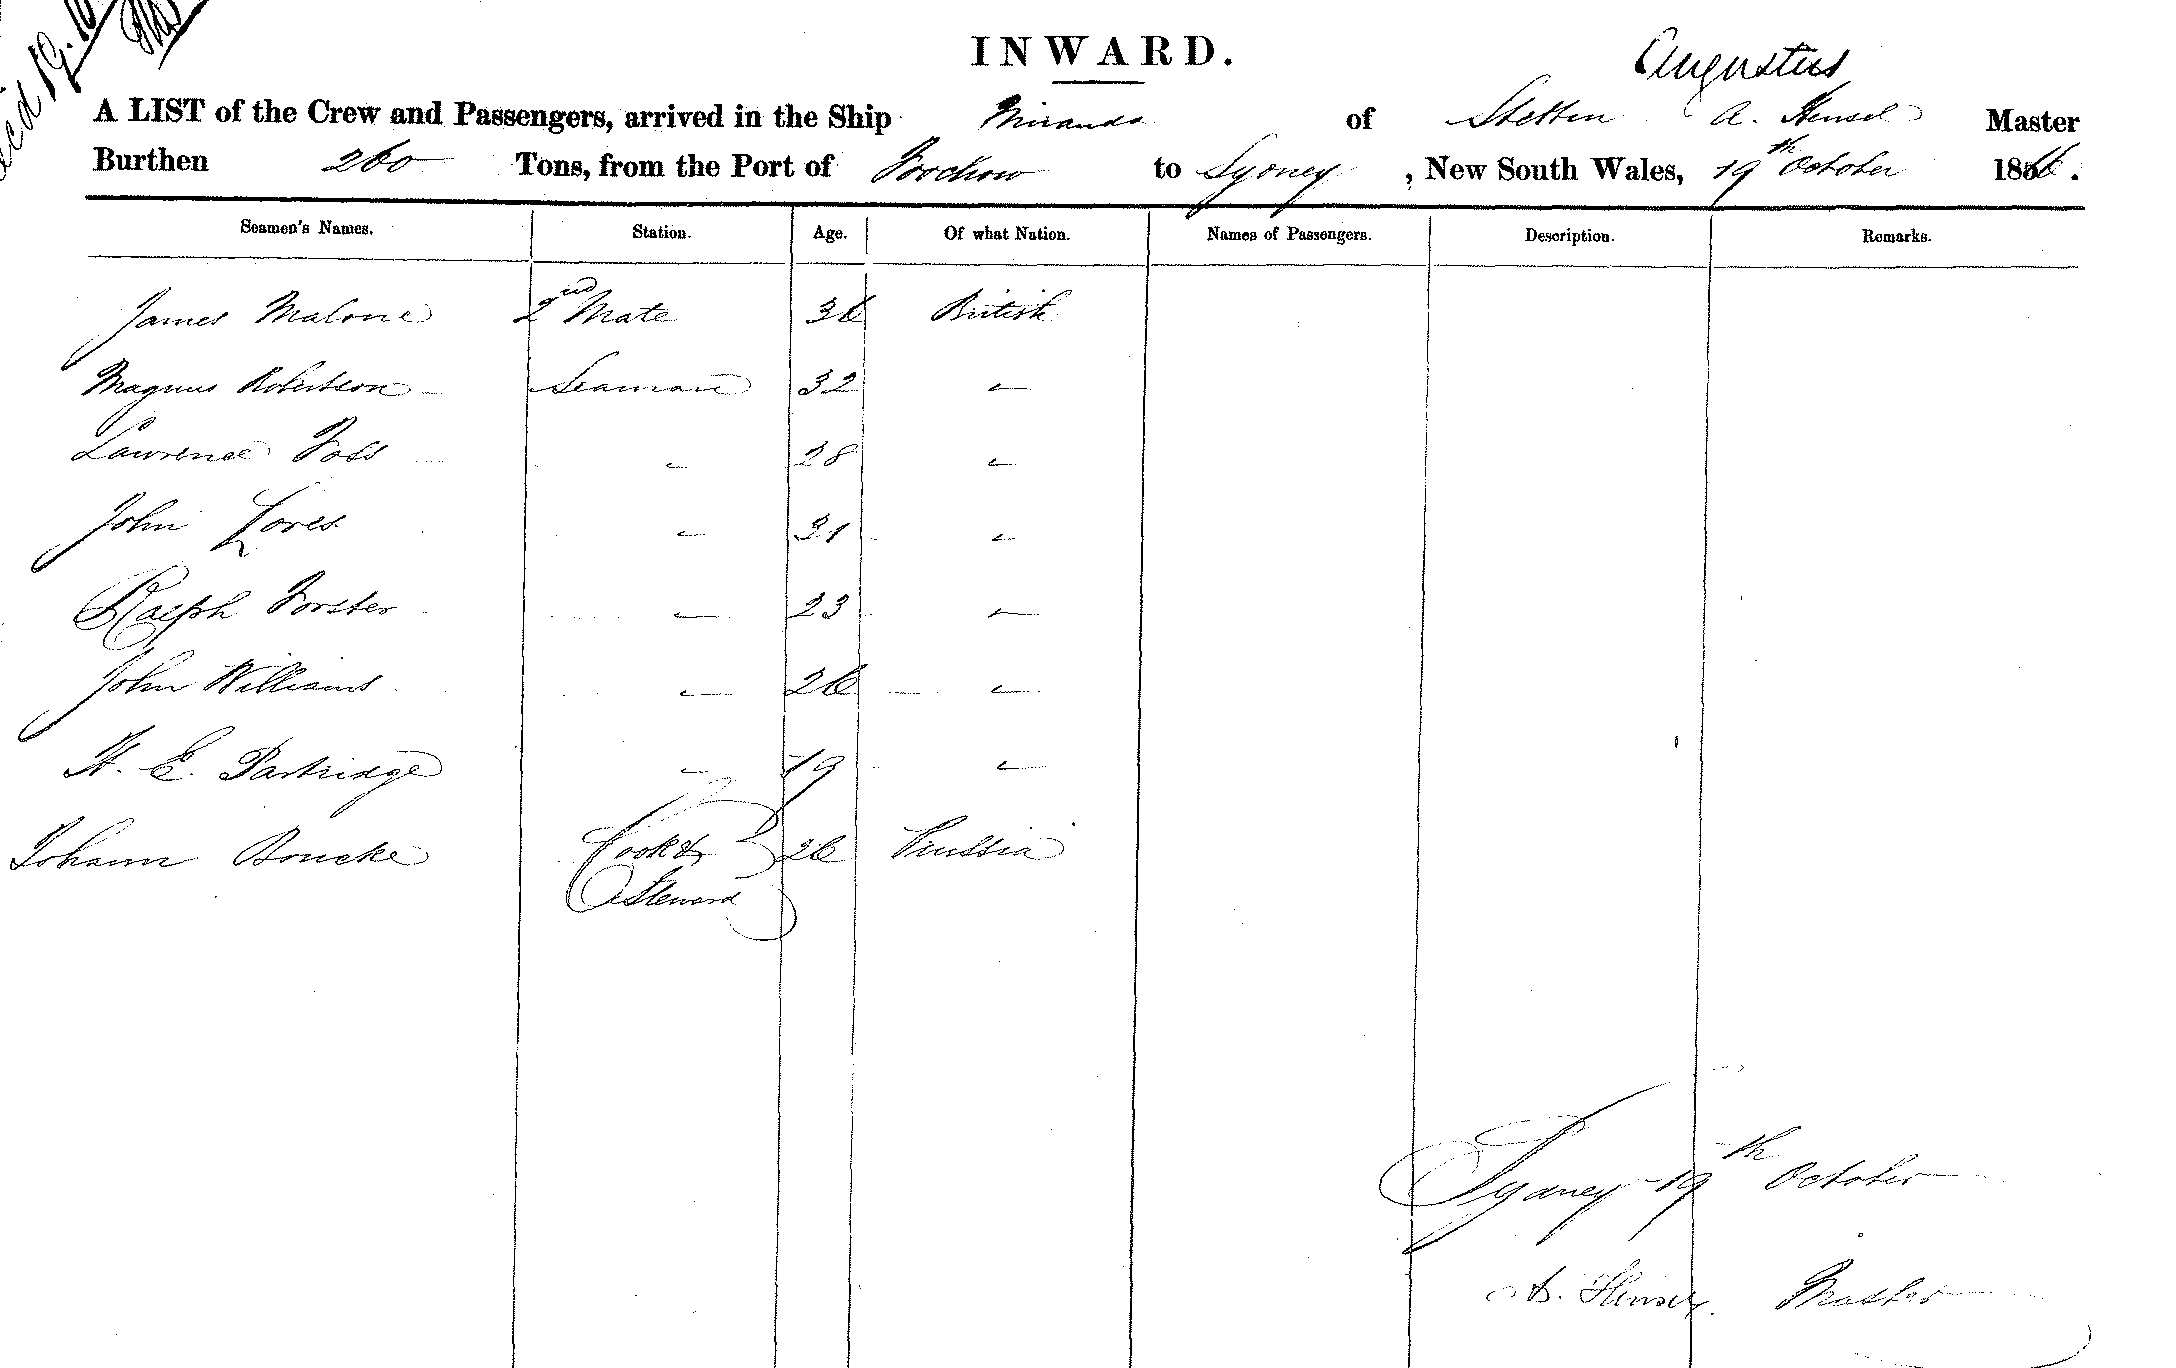 INWARD.
Augustus
A LIST of the Crew and Passengers, arrived in the Ship Miranda of Stettin A. Hensel Master
Burthen 260 Tons, from the Port of Foochow to Sydney, New South Wales, 19th October 1866.
Seamen's Names. Station. Age. Of what Nation. Names of Passengers. Description. Remarks.
James Malone 2nd Mate 36 British
Magnus Robertson Seaman 32 "
Lawrence Foss " 28 "
John " 21 "
Ralph Forster " 23 "
John Williams " 26 "
H. E. Partridge " 19 "
Johann Boucke Cook & 26 Prussia
Steward
Sydney 19th October
A. Hensel Master